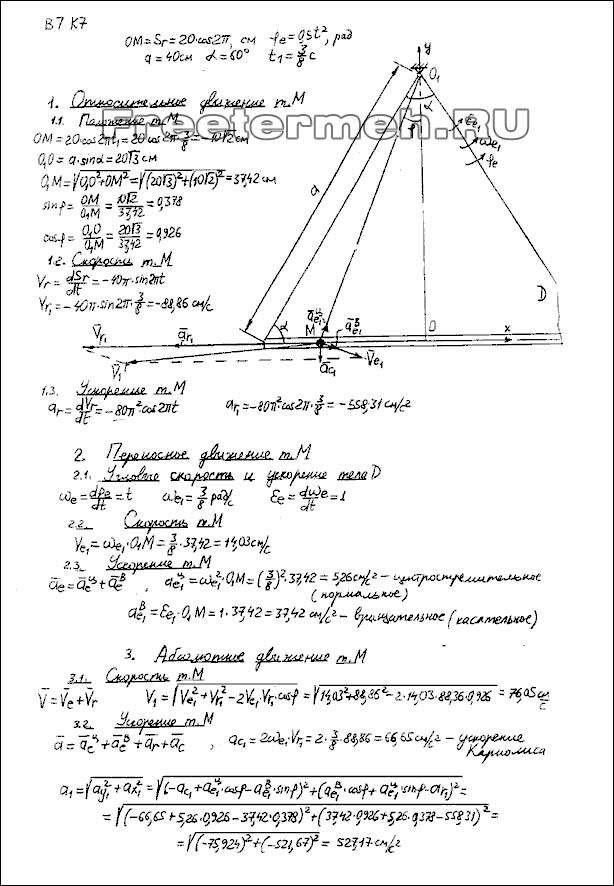 В7 К7
OM=Sr=20·cos2π, см φe=0,5t², рад
a=40см α=60° t1=3/8 c
1. Относительное движение т.М
1.1. Положение т.М
OM=20·cos2πt1=20cos2π·3/8=-10√2см
O1O=a·sinα=20√3см
O1M=√(O1O²+OM²)=√((20√3)²+(10√2)²)=37,42 см
sinβ=OM/O1M=10√2/37,42=0,378
cosβ=O1O/O1M=20√3/37,42=0,926
1.2. Скорость т.М
Vr=dSr/dt=-40π·sin2πt
Vr1=-40π·sin2π·3/8=-88,86 см/с
Freetermeh.RU
y
O1
α
β
a
εe1
ωe1
φe
D
O
x
α
M
āц e1
āВ e1
V̄e1
āc1
V̄r1
ār1
V̄1
1.3. Ускорение т.М
ar=dVr/dt=-80π²cos2πt ar1=-80π²cos2π·3/8=-558,31 см/с²
2. Переносное движение т.М
2.1. Угловые скорость и ускорение тела D
ωe=dφe/dt=t ωe1=3/8 рад/с εe=dωe/dt=1
2.2. Скорость т.М
Ve1=ωe1·O1M=3/8·37,42=14,03см/с
2.3. Ускорение т.М
āe=āeц+āeВ, ae1ц=ωe1²·O1M=(3/8)²·37,42=5,26см/с²-центростремительное
(нормальное)
ae1В=εe1·O1M=1·37,42=37,42 см/с²-вращательное (касательное)
3. Абсолютное движение т.М
3.1. Скорость т.М
V̄=V̄e+V̄r V1=√(Ve1²+Vr1²-2Ve1·Vr1·cosβ)=√(14,03²+88,36²-2·14,03·88,36·0,926)=76,05 см/с
3.2. Ускорение т.М
ā=āeц+āeВ+ār+āc, ac1=2ωe1·Vr1=2·3/8·88,86=66,65см/с²-ускорение
Кариолиса
a1=√(ay1²+ax1²)=√((-ac1+ae1ц·cosβ-ae1В·sinβ)²+(ae1В·cosβ+ae1ц·sinβ-ar1)²)=
=√((-66,65+5,26·0,926-37,42·0,378)²+(37,42·0,926+5,26·0,378-558,31)²)=
=√((-75,924)²+(-521,67)²)=527,17 см/с²